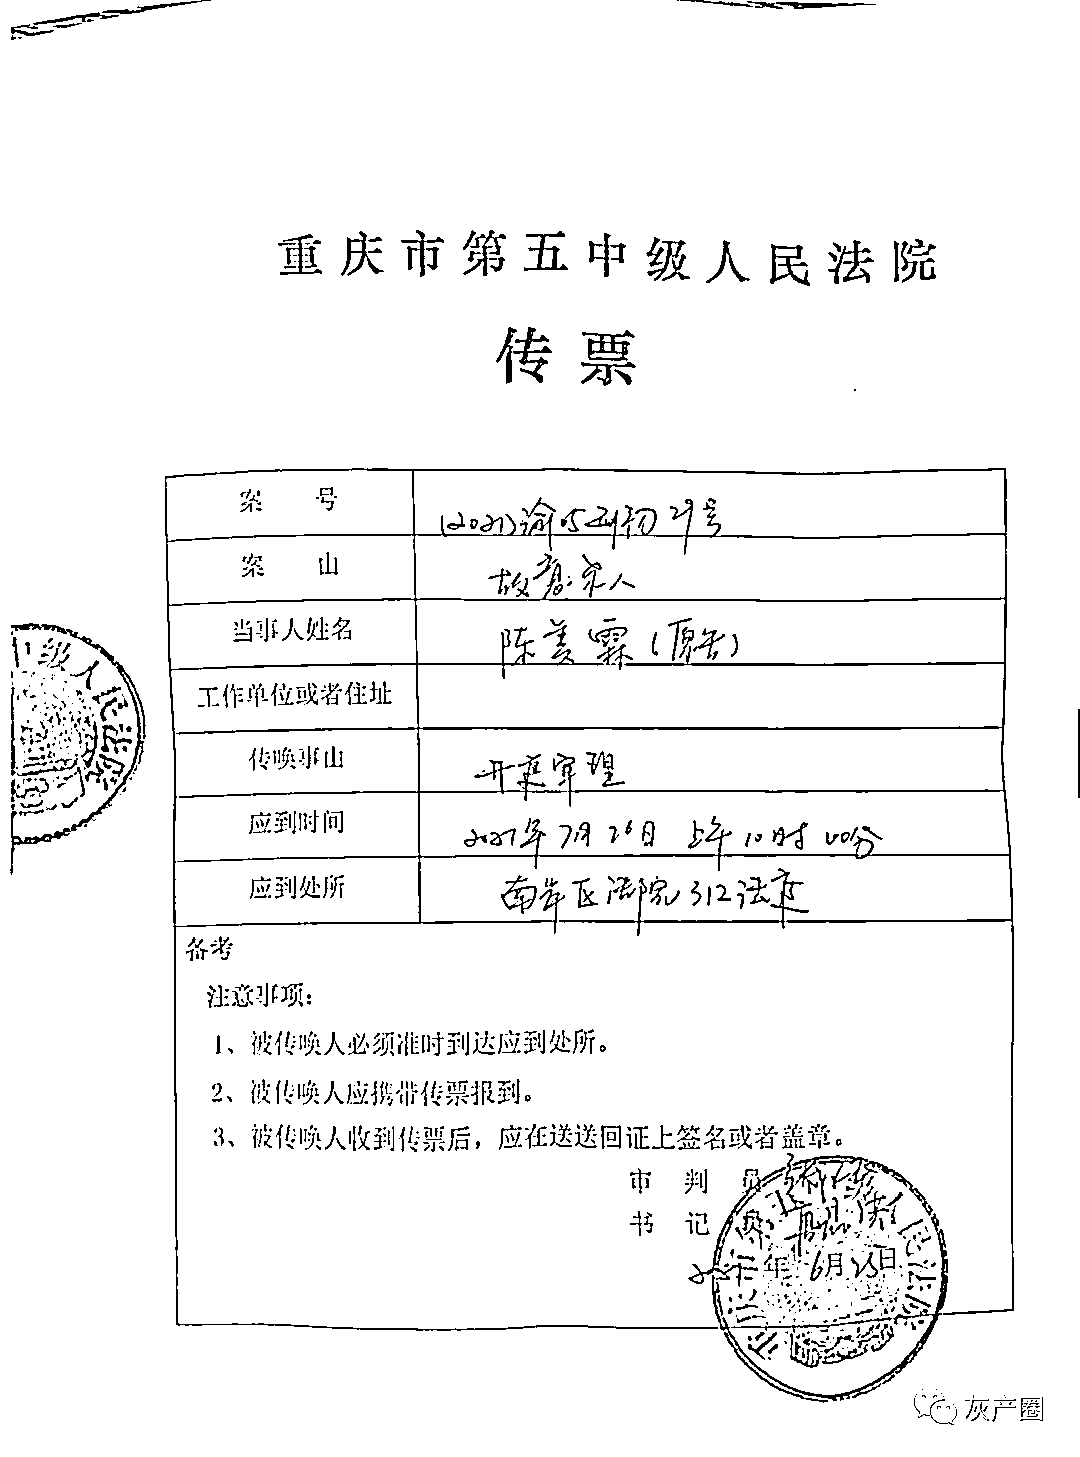 重庆市第五中级人民法院
传票
案号 (2021)渝05刑初29号
案由 故意杀人
当事人姓名 陈美霖(原告)
工作单位或者住址
传唤事由 开庭审理
应到时间 2021年7月26日 上午10时00分
应到处所 南岸区法院312法庭
备考
注意事项：
1、被传唤人必须准时到达应到处所。
2、被传唤人应携带传票报到。
3、被传唤人收到传票后，应在送送回证上签名或者盖章。
审判员
书记员
2021年6月25日
中级人民法院
人民法院
灰产圈